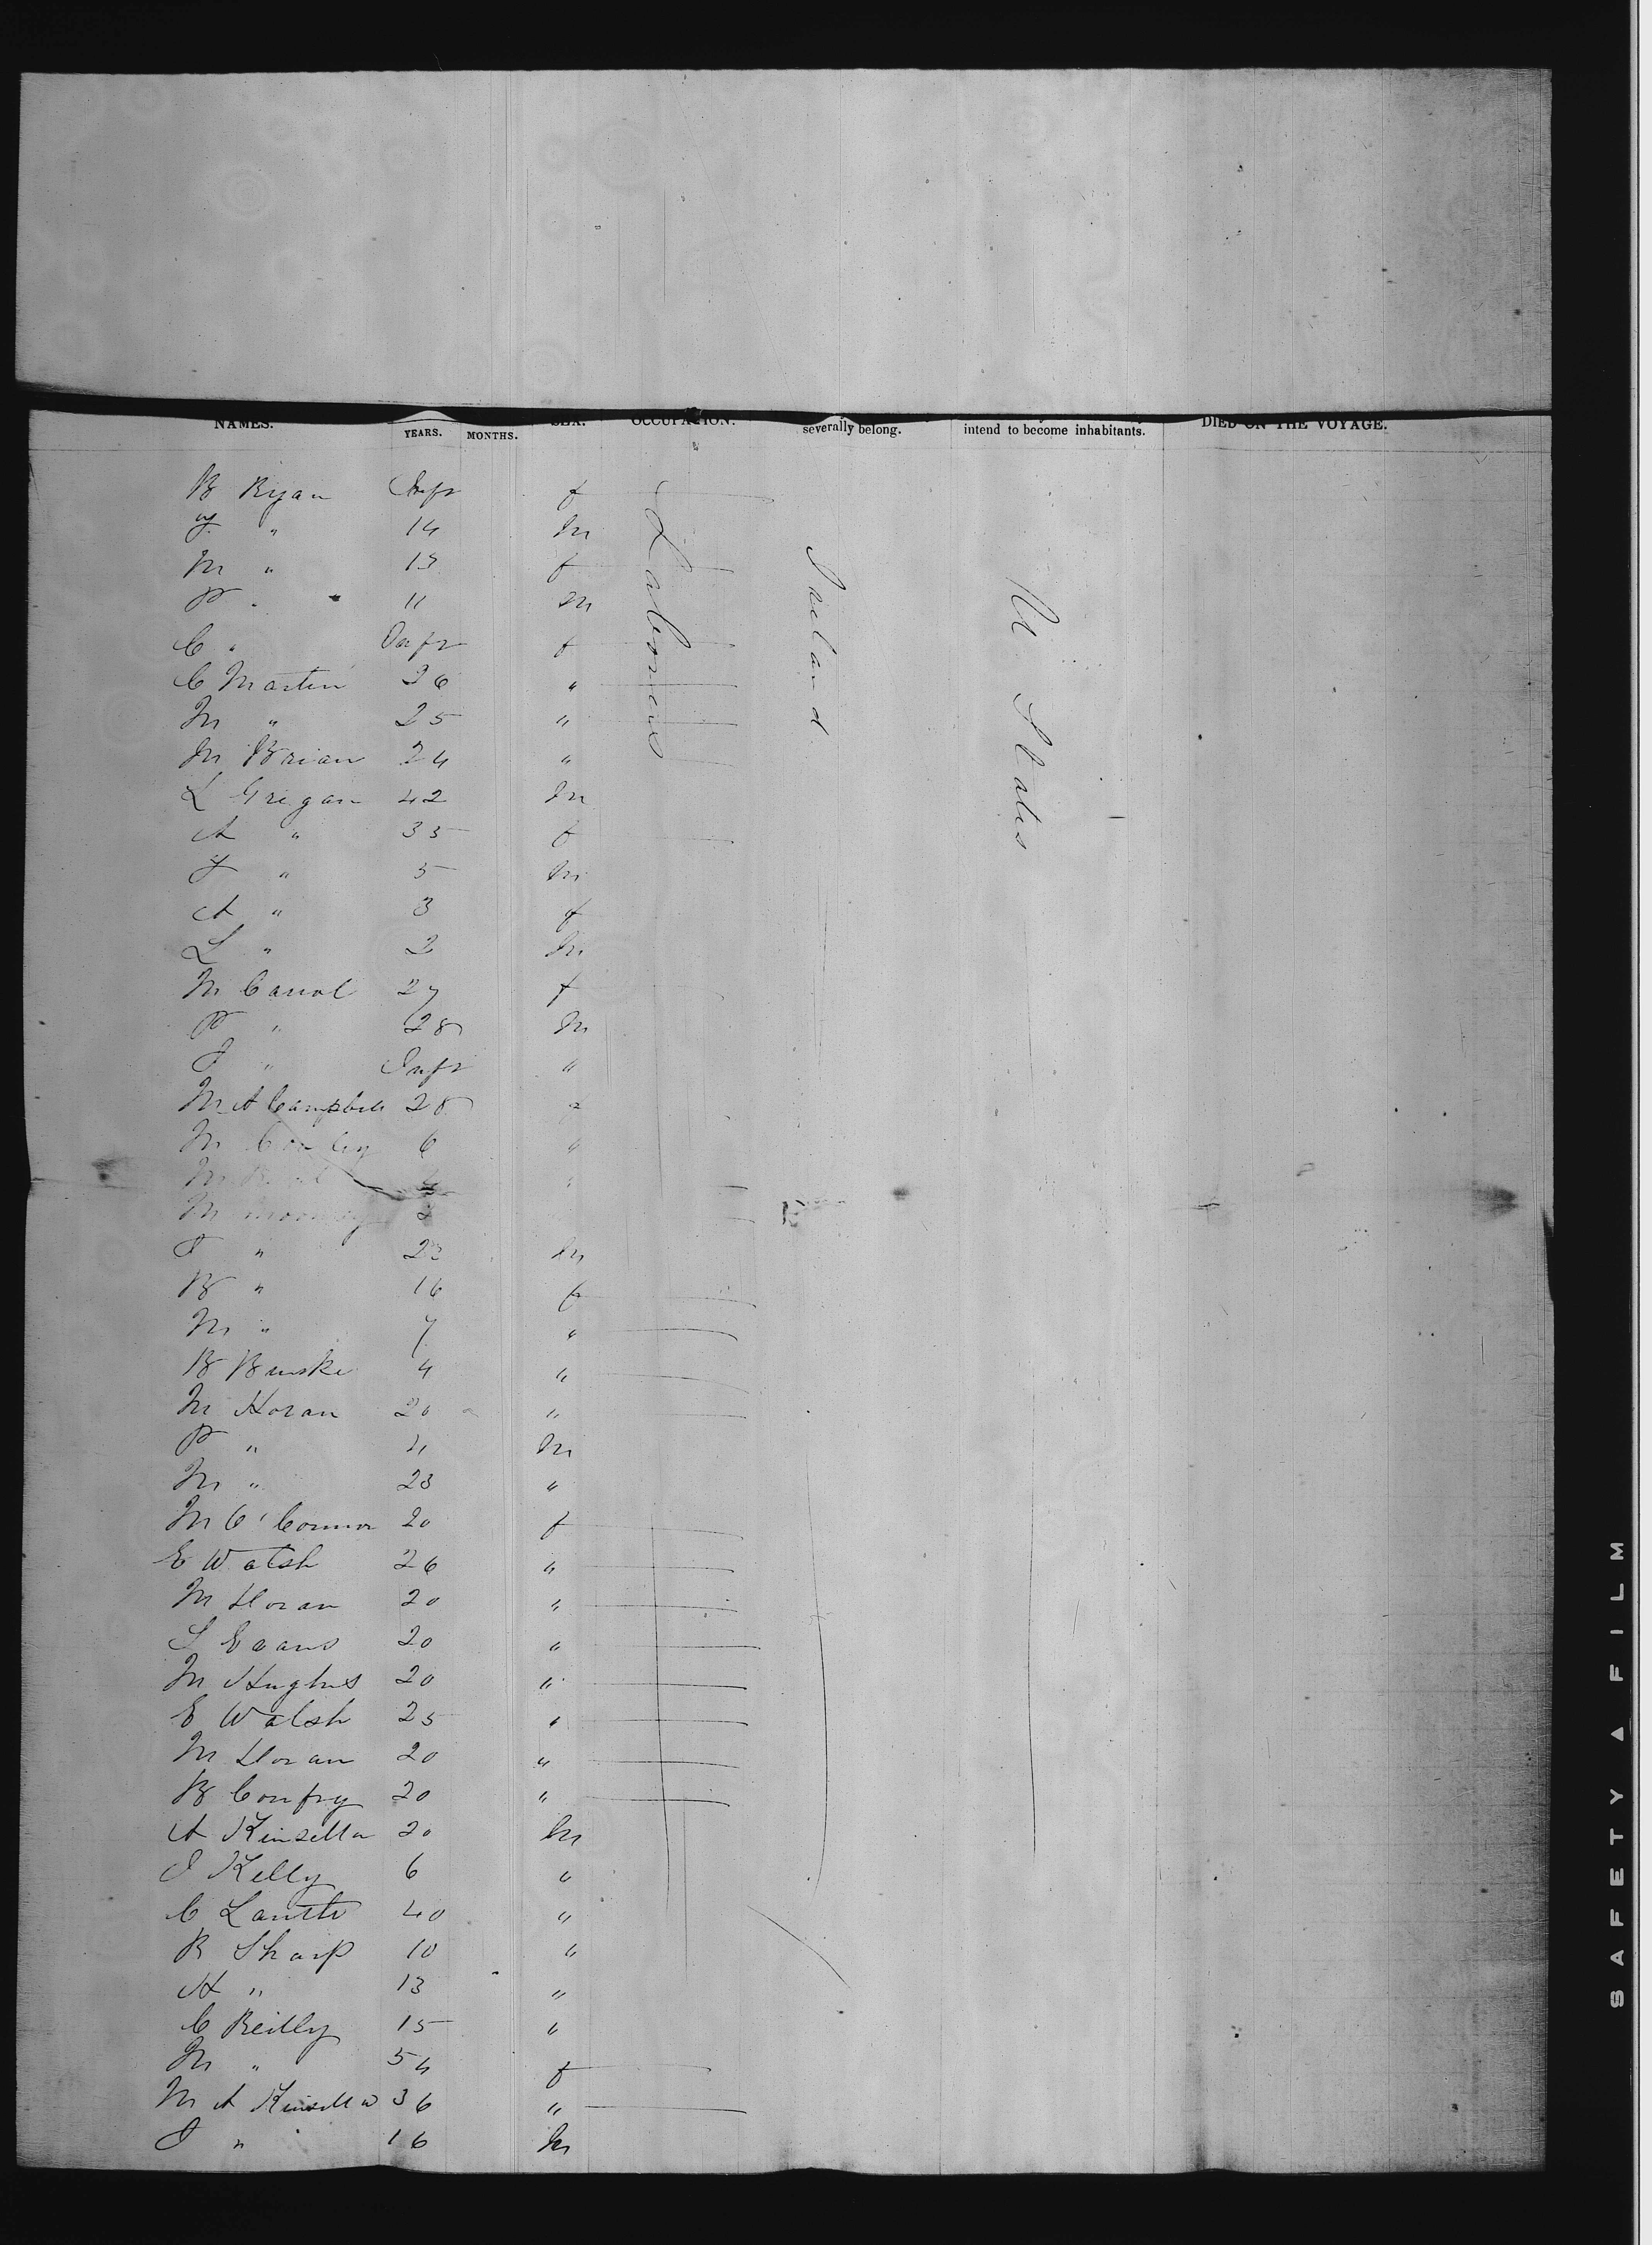 NAMES. YEARS. MONTHS. SEX. OCCUPATION. severally belong. intend to become inhabitants. DIED ON THE VOYAGE.
B Ryan Inft f
J. " 14 m
M " 13 f
P " 11 m
C " Inft f
C Martin 26 "
M " 25 "
M Brian 24 "
L Gregan 42 m
A " 35 f
J " 5 m
A " 3 f
L " 2 m
M Carrol 27 f
P " 28 m
J " Inft "
M A Campbell 28 "
M Conley 6 "
M "
M Mooney 2
J " 22 m
B " 16 f
M " 7 "
B Burske 4 "
M Horan 20 "
P " 4 m
M " 23 "
M O'Connor 20 f
E Walsh 26 "
M Horan 20 "
S Evans 20 "
M Hughes 20 "
E Walsh 25 "
M Horan 20 "
B Confry 20 "
A Kinsella 20 m
J Kelly 6 "
C 40 "
R Sharp 10 "
H " 13 "
C Reilly 15 "
M " 54 f
M A Kinsella 36 "
J " 16 m
Labourers
Ireland
Ud States
SAFETY ▲ FILM